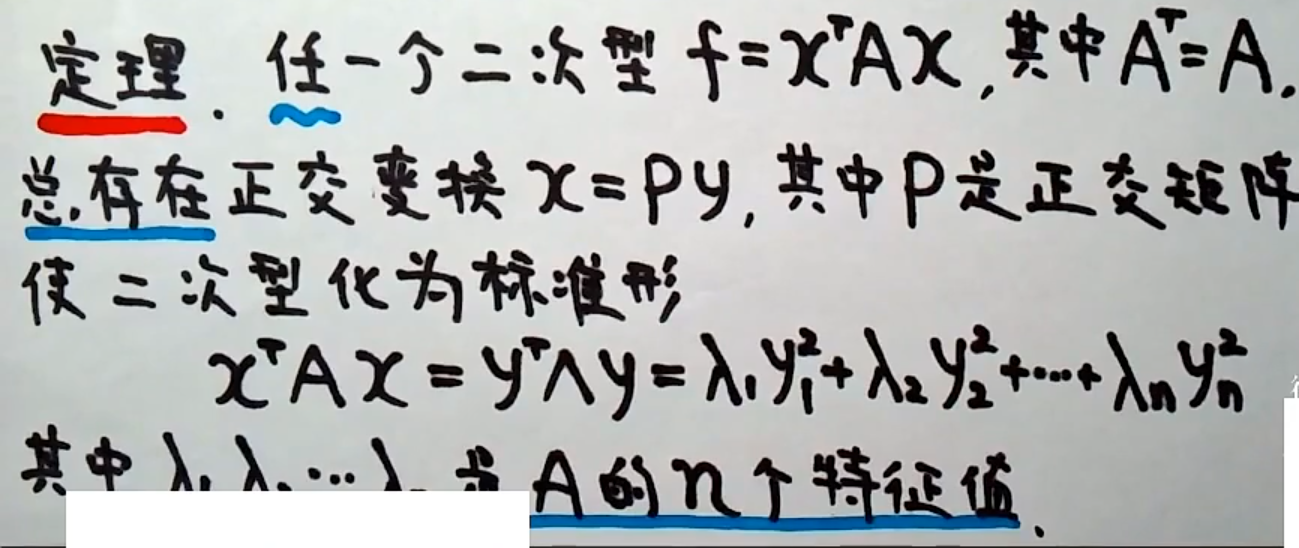 定理. 任一个二次型 f=xᵀAx, 其中Aᵀ=A.
总存在正交变换 x=Py, 其中P是正交矩阵
使二次型化为标准形
xᵀAx=yᵀΛy=λ₁y₁²+λ₂y₂²+⋯+λₙyₙ²
其中 A的n个特征值.